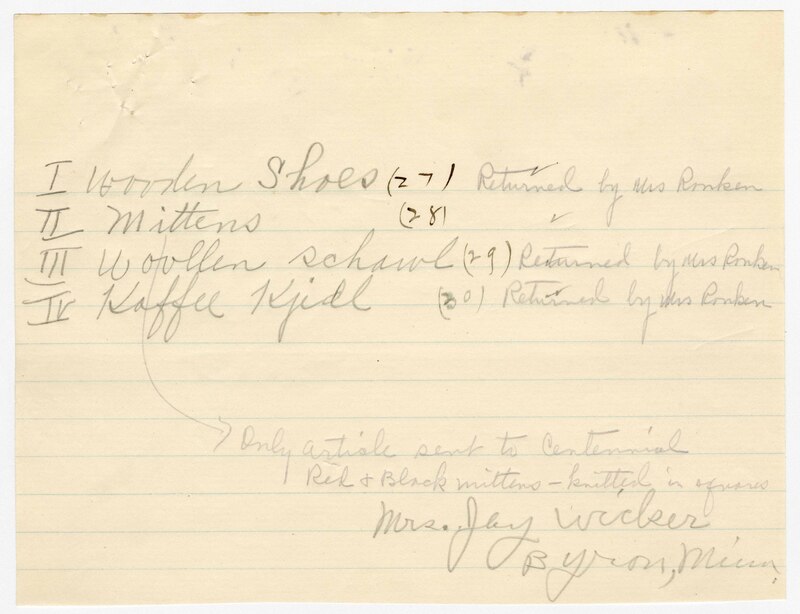 I Wooden Shoes (27) Returned by Mrs Ronken
II Mittens (28)
III Woollen schawl (29) Returned by Mrs Ronken
IV Kaffee Kjedl (30) Returned by Mrs Ronken
Only article sent to Centennial
Red & Black mittens - knitted in squares
Mrs. Jay Wicker
Byron, Minn.